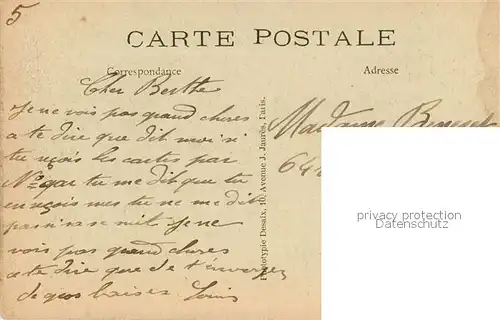 5
CARTE POSTALE
Correspondance
Adresse
Cher Berthe
Je ne vois pas grand choses
a te dire que dit moi si
tu reçois les cartes par
No car tu me dit que tu
en reçois mes tu ne me dit
pas Je ne
vois pas grand choses
a te dire que de t'envoyer
de gros baiser Louis
Phototypie Desaix, 10, Avenue J. Jaurès, Paris.
Madame
64
privacy protection
Datenschutz